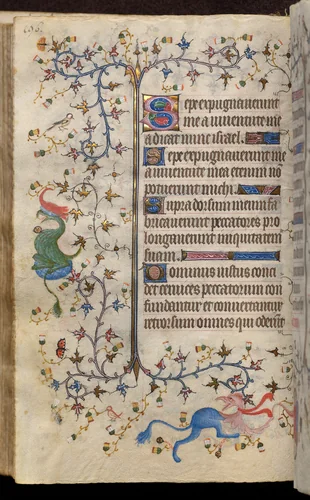 Sepe expugnaverunt
me a iuventute me
a dicat nunc israel.
Sepe expugnaverunt me
a iuventute mea etenim no
potuerunt michi.
Supra dorsum meum fa
bricaverunt peccatores pro
longaverunt iniquitatem
suam.
Dominus iustus conci
det cervices peccatorum con
fundantur et convertantur
retrorsum omnes qui oderunt